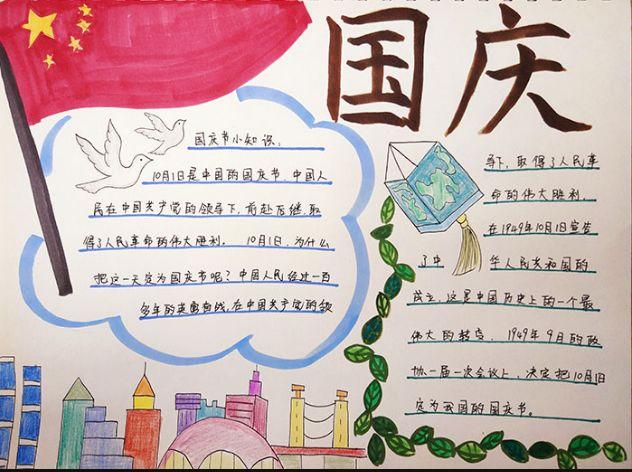 国庆
国庆节小知识：
10月1日是中国的国庆节，中国人
民在中国共产党的领导下，前赴后继，取
得了人民革命的伟大胜利。 10月1日，为什么
把这一天定为国庆节呢？中国人民经过一百
多年的英勇奋战，在中国共产党的领
导下，取得了人民革
命的伟大胜利。
在1949年10月1日宣告
了中 华人民共和国的
成立，这是中国历史上的一个最
伟大的转变，1949年9月的政
协一届一次会议上，决定把10月1日
定为我国的国庆节。